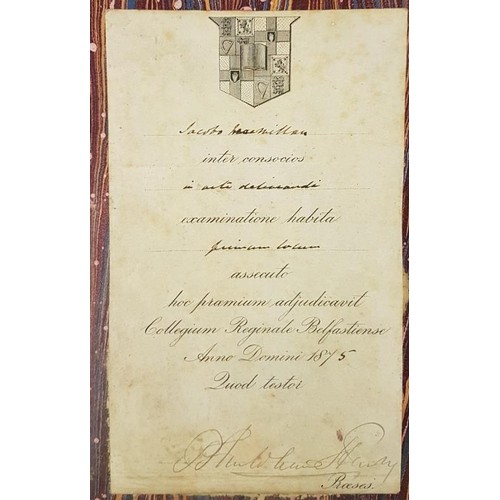 Jacobo MacMillan
inter consocios
in arte delineandi
examinatione habita
primum locum
assecuto
hoc præmium adjudicavit
Collegium Reginale Belfastiense
Anno Domini 1875
Quod testor
Henry
Præses.